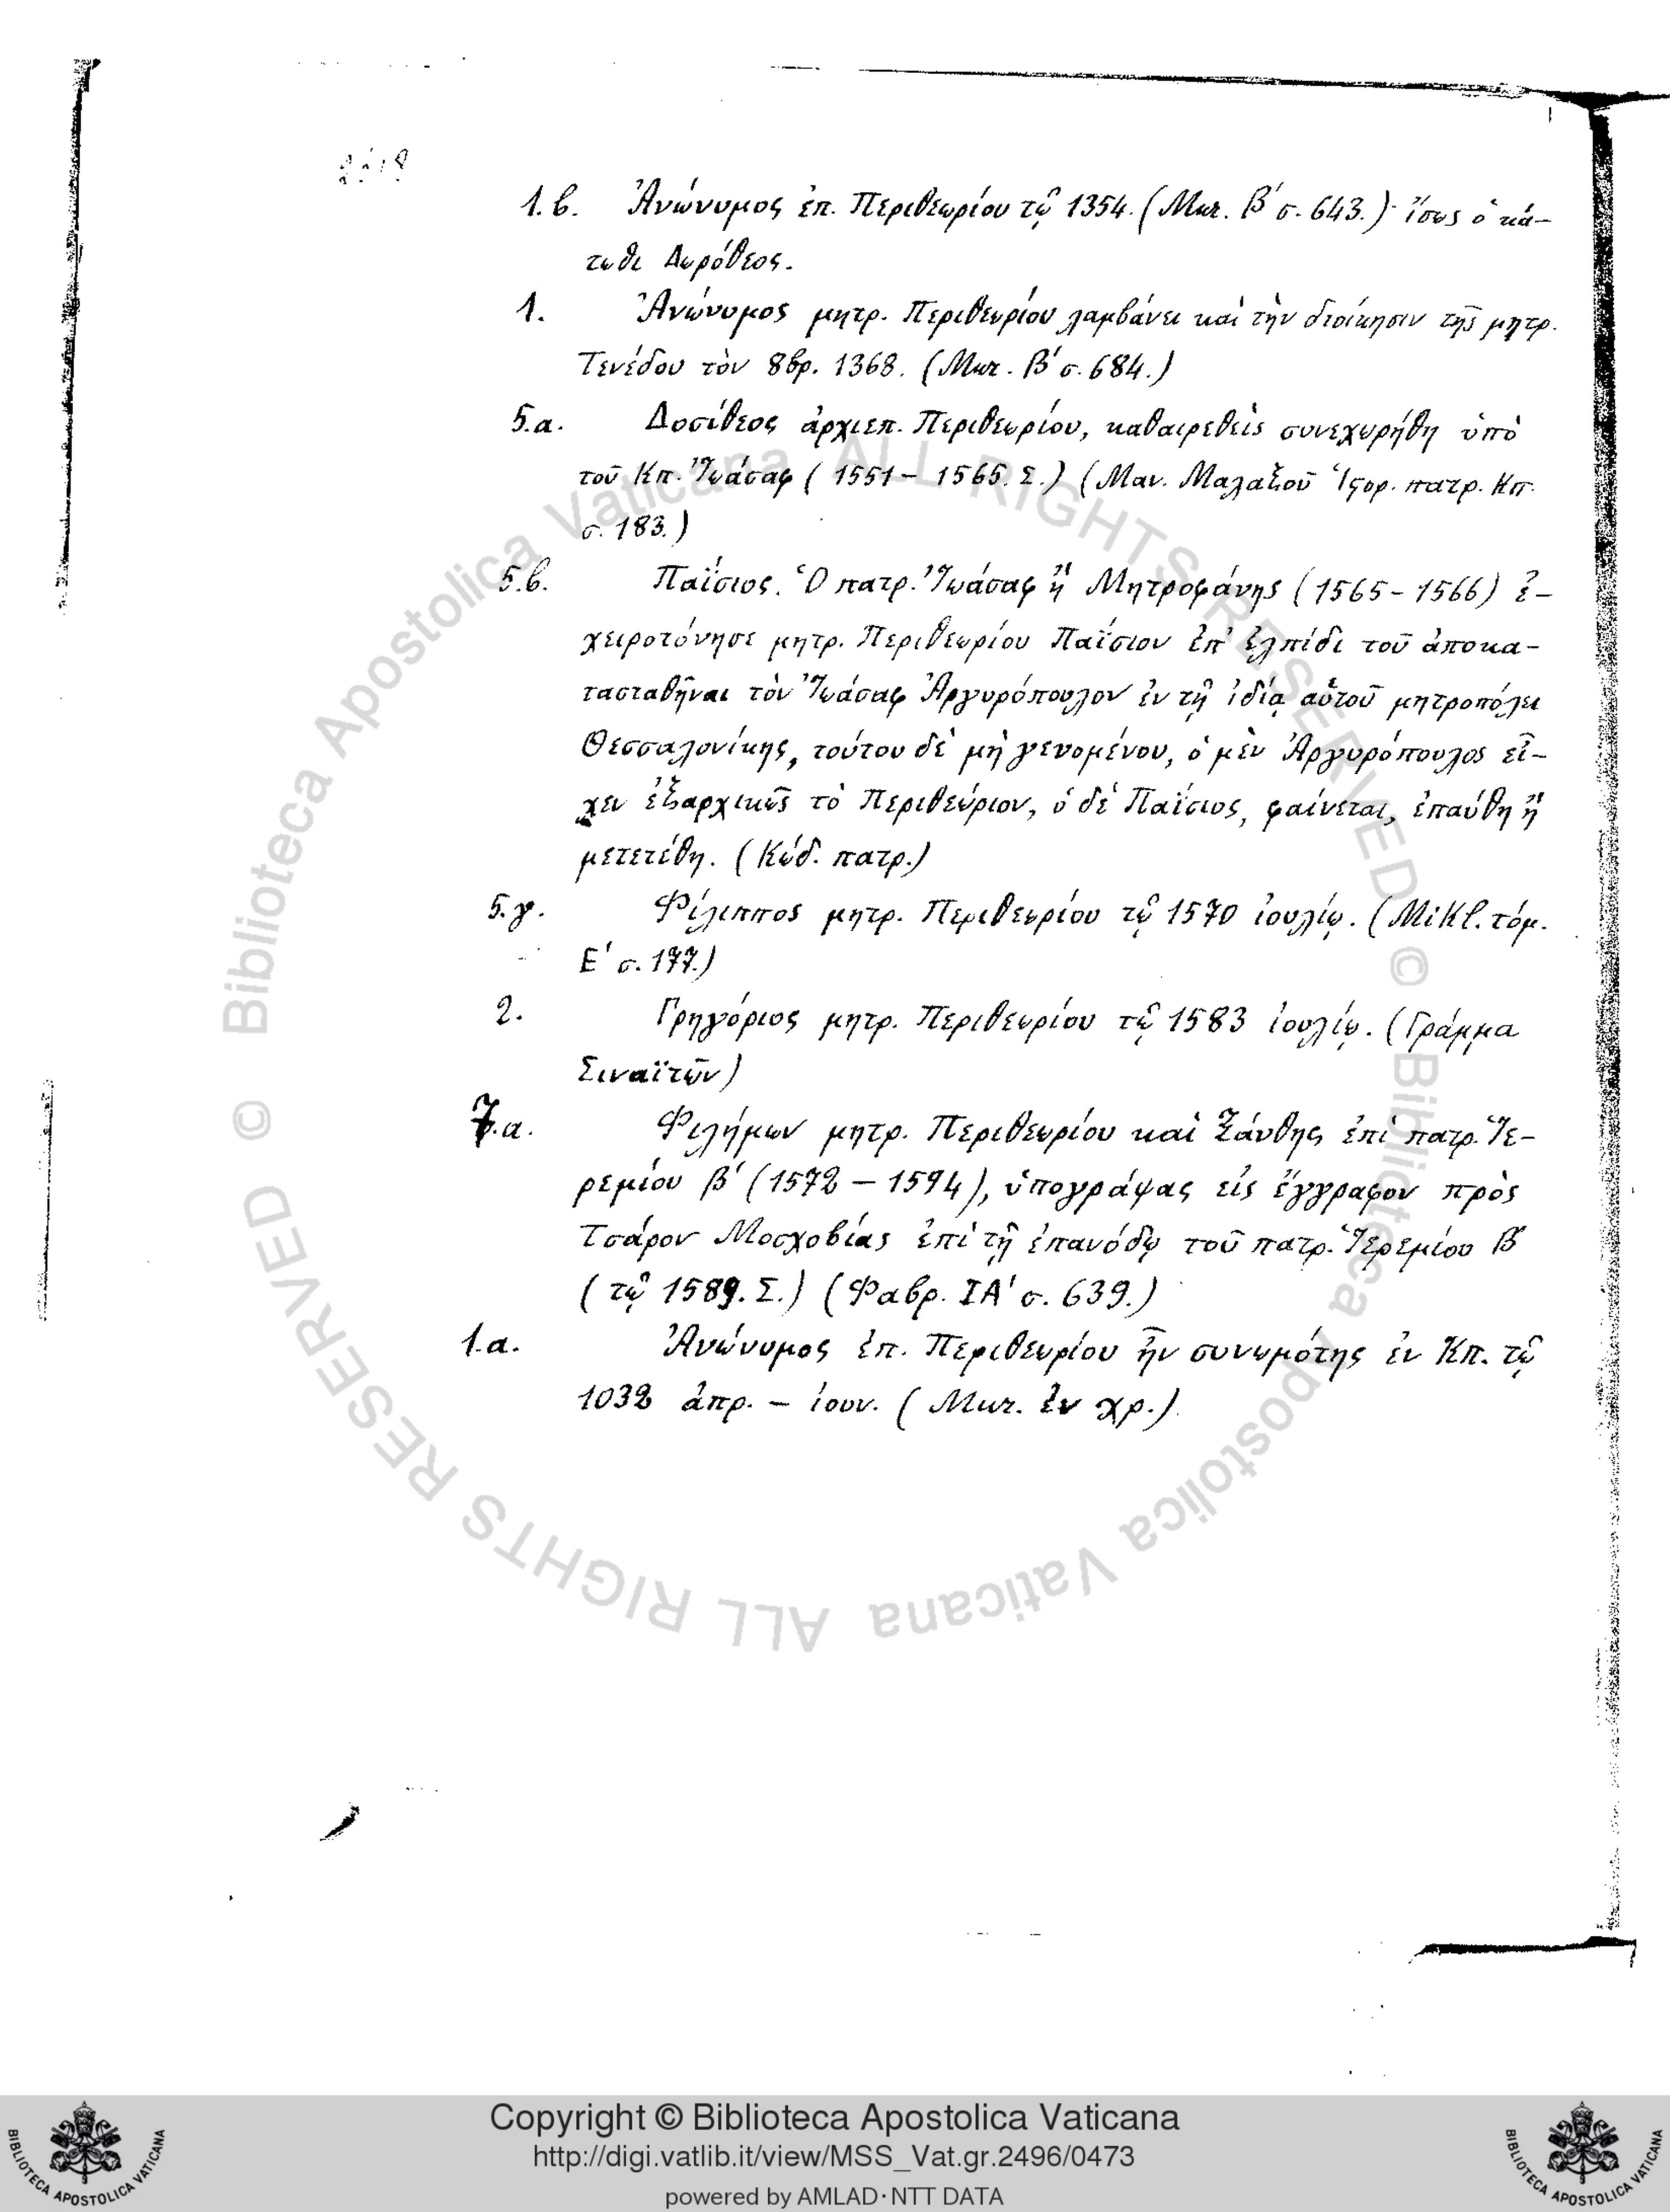 1.β. Ἀνώνυμος ἐπ. Περιθεωρίου τῷ 1354. (Μικ. Β΄ σ. 643.) ἴσως ὁ κά-
τωθι Δωρόθεος.
1. Ἀνώνυμος μητρ. Περιθεωρίου λαμβάνει καὶ τὴν διοίκησιν τῆς μητρ.
Τενέδου τὸν 8βρ. 1368. (Μικ. Β΄ σ. 684.)
5.α. Δοσίθεος ἀρχιεπ. Περιθεωρίου, καθαιρεθεὶς συνεχωρήθη ὑπὸ
τοῦ Κπ. Ἰωάσαφ (1551 – 1565. Σ.) (Μαν. Μαλαξοῦ Ἱστορ. πατρ. Κπ.
σ. 183.)
5.β. Παΐσιος. Ὁ πατρ. Ἰωάσαφ ἢ Μητροφάνης (1565 – 1566) ἐ-
χειροτόνησε μητρ. Περιθεωρίου Παΐσιον ἐπ' ἐλπίδι τοῦ ἀποκα-
τασταθῆναι τὸν Ἰωάσαφ Ἀργυρόπουλον ἐν τῇ ἰδίᾳ αὐτοῦ μητροπόλει
Θεσσαλονίκης, τούτου δὲ μὴ γενομένου, ὁ μὲν Ἀργυρόπουλος εἶ-
χεν ἐξαρχικῶς τὸ Περιθεώριον, ὁ δὲ Παΐσιος, φαίνεται, ἐπαύθη ἢ
μετετέθη. (Κώδ. πατρ.)
5.γ. Φίλιππος μητρ. Περιθεωρίου τῷ 1570 ἰουλίῳ. (Mikl. τόμ.
Ε΄ σ. 177.)
2. Γρηγόριος μητρ. Περιθεωρίου τῷ 1583 ἰουλίῳ. (Γράμμα
Σιναϊτῶν)
7.α. Φιλήμων μητρ. Περιθεωρίου καὶ Ξάνθης ἐπὶ πατρ. Ἱε-
ρεμίου β΄ (1572 – 1594), ὑπογράψας εἰς ἔγγραφον πρὸς
Τσάρον Μοσχοβίας ἐπὶ τῇ ἐπανόδῳ τοῦ πατρ. Ἱερεμίου Β΄
(τῷ 1589. Σ.) (Φαβρ. ΙΑ΄ σ. 639.)
1.α. Ἀνώνυμος ἐπ. Περιθεωρίου ἦν συνωμότης ἐν Κπ. τῷ
1032 ἀπρ. – ἰουν. (Μικ. ἐν χρ.)
© Biblioteca Apostolica Vaticana ALL RIGHTS RESERVED © Biblioteca Apostolica Vaticana ALL RIGHTS RESERVED
Copyright © Biblioteca Apostolica Vaticana
http://digi.vatlib.it/view/MSS_Vat.gr.2496/0473
powered by AMLAD·NTT DATA
BIBLIOTECA APOSTOLICA VATICANA
BIBLIOTECA APOSTOLICA VATICANA